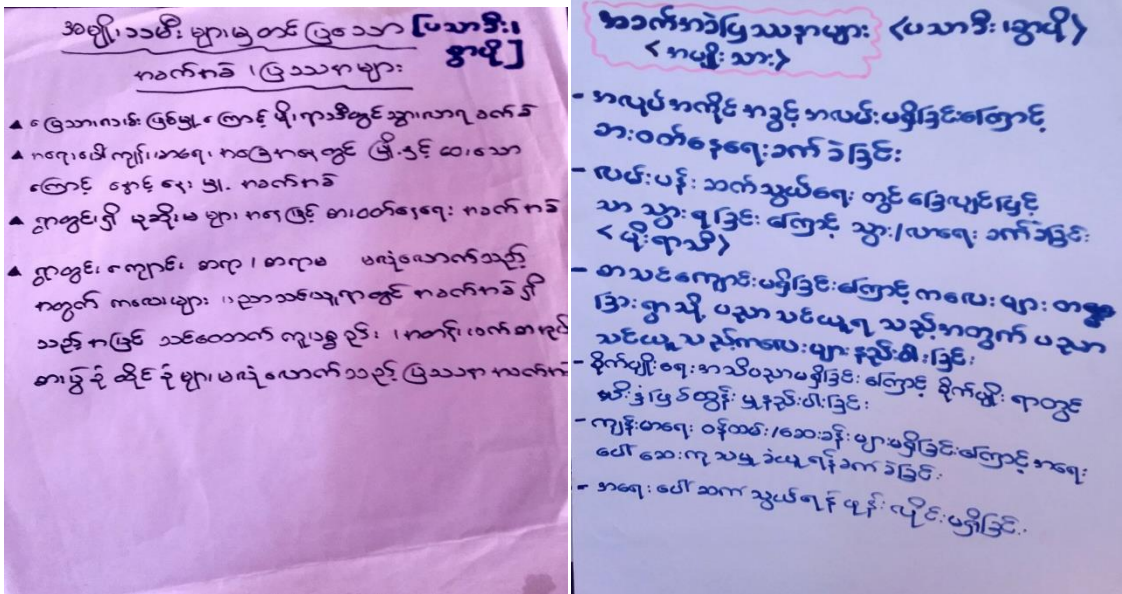 အမျိုးသမီးများမှတင်ပြသော [ပသာဒီး၊
စွာပို]
အခက်အခဲ၊ပြဿနာများ
▲ မြေသားလမ်းဖြစ်မှုကြောင့် မိုးရာသီတွင်သွားလာရခက်ခဲ
▲ အရေးပေါ်ကျန်းမာရေး အခြေအနေတွင် မြို့နှင့်ဝေးသော
ကြောင့် နှောင့်နှေးမှု အခက်အခဲ
▲ ရွာတွင်းရှိ မုဆိုးမများအနေဖြင့် စားဝတ်နေရေး အခက်အခဲ
▲ ရွာတွင်းကျောင်း ဆရာ၊ဆရာမ မလုံလောက်သည့်
အတွက် ကလေးများ ပညာသင်ယူရာတွင် အခက်အခဲရှိ
သည့်အပြင် သင်ထောက်ကူပစ္စည်း၊ အတန်းဖက်စာအုပ်
စားပွဲခုံထိုင်ခုံများမလုံလောက်သည့် ပြဿနာအခက်အခဲ
အခက်အခဲပြဿနာများ <ပသာဒီး၊စွာပို>
<အမျိုးသား>
- အလုပ်အကိုင်အခွင့်အလမ်းမရှိခြင်းကြောင့်
စားဝတ်နေရေးခက်ခဲခြင်း
- လမ်းပန်းဆက်သွယ်ရေးတွင်ခြေလျင်ဖြင့်
သာသွားရခြင်းကြောင့် သွား/လာရေးခက်ခဲခြင်း
<မိုးရာသီ>
- စာသင်ကျောင်းမရှိခြင်းကြောင့်ကလေးများ တရွာ
ခြားရွာသို့ ပညာသင်ယူရသည့်အတွက် ပညာ
သင်ယူသည့်ကလေးများနည်းပါးခြင်း
- စိုက်ပျိုးရေးအသိပညာမရှိခြင်းကြောင့် စိုက်ပျိုးရာတွင်
သီးနှံဖြစ်ထွန်းမှုနည်းပါးခြင်း
- ကျန်းမာရေးဝန်ထမ်း/ဆေးခန်းများမရှိခြင်းကြောင့်အရေး
ပေါ်ဆေးကုသမှုခံယူရန်ခက်ခဲခြင်း
- အရေးပေါ်ဆက်သွယ်ရန်ဖုန်းလိုင်းမရှိခြင်း